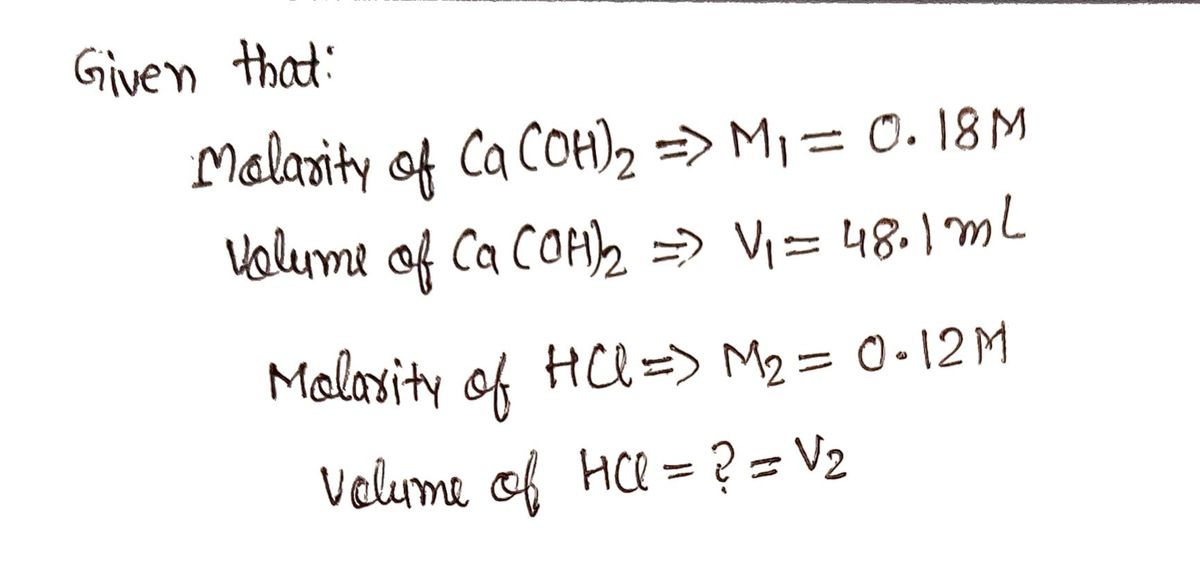 Given that:
Molarity of Ca(OH)2 => M1 = 0.18M
Volume of Ca(OH)2 => V1 = 48.1mL
Molarity of HCl => M2 = 0.12M
Volume of HCl = ? = V2